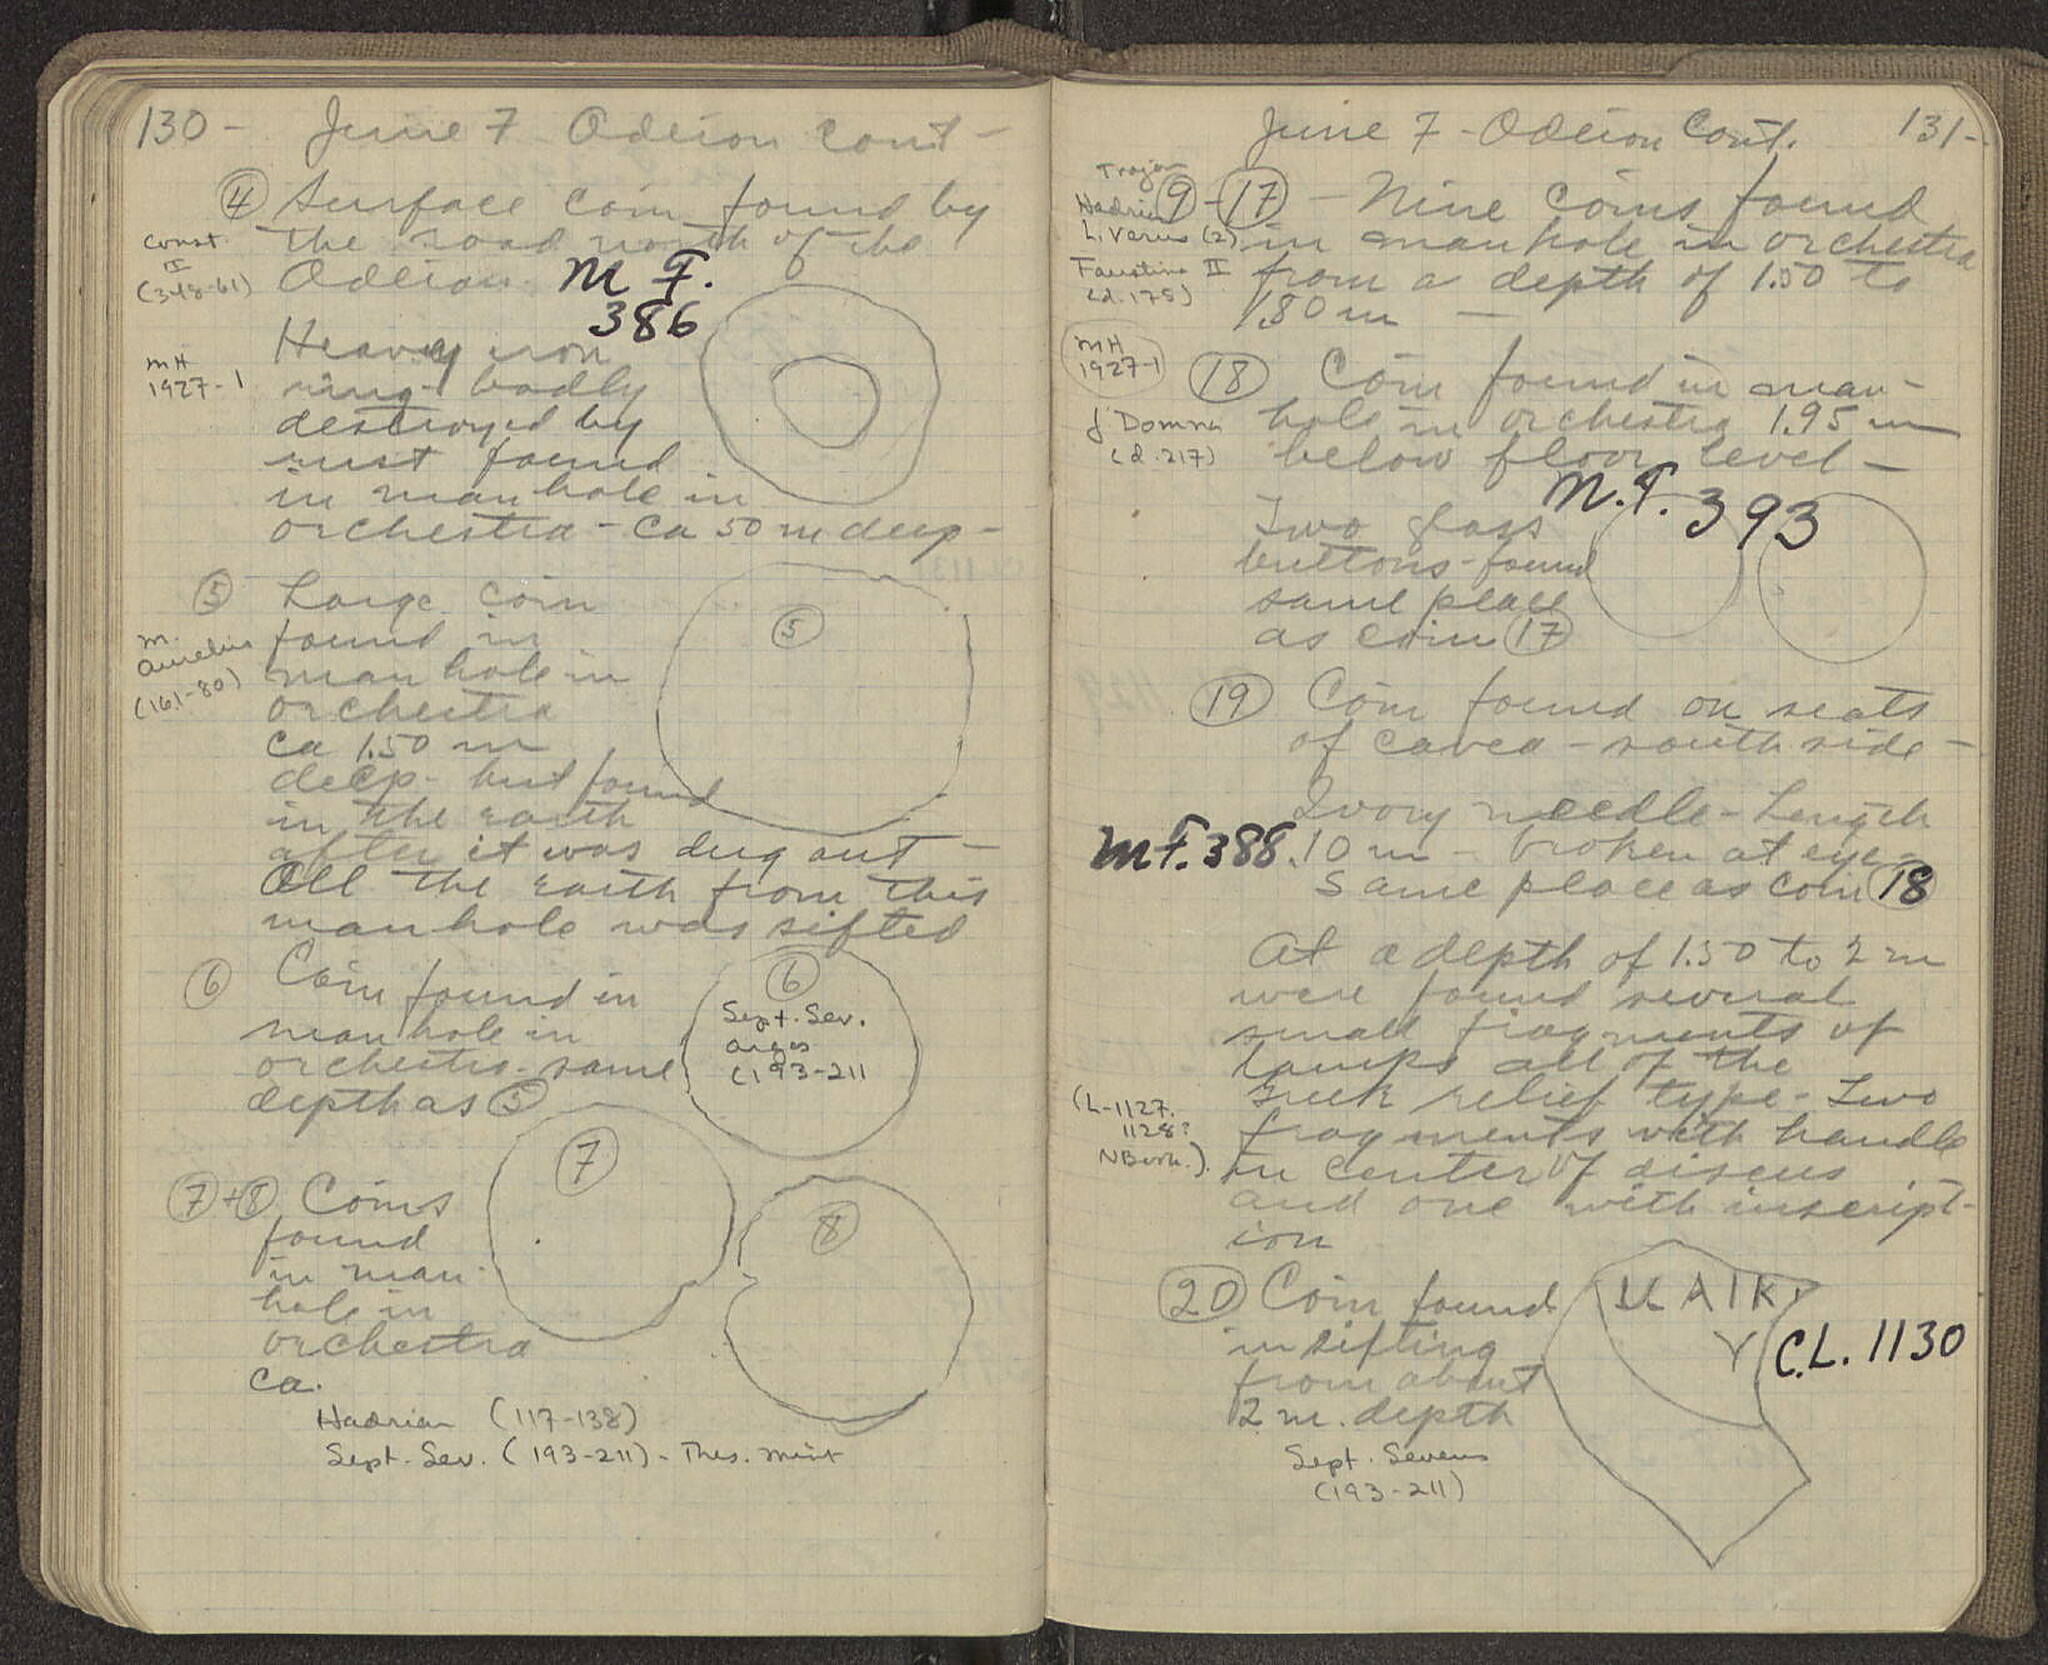 130 - June 7 Odeion Cont -
④ Surface coin found by
Const the road north of the
II
(348-61) Odeion M F.
386
Heavy iron
MH
1927-1 ring - badly
destroyed by
rust found
in manhole in
orchestra - ca 50 m deep -
⑤ Large coin
⑤
M. found in
Aurelius manhole in
(161-80) orchestra
ca 1.50 m
deep - but found
in the earth
after it was dug out -
All the earth from this
manhole was sifted
⑥ Coin found in
⑥
Sept. Sev.
Argos
(193-211
manhole in
orchestra - same
depth as ⑤
⑦ + ⑧ Coins
⑦
⑧
found
in man-
hole in
orchestra
ca.
Hadrian (117-138)
Sept. Sev. (193-211) - Thes. mint
June 7 - Odeion Cont. 131 -
Trajan
Hadrian
L. Verus (2)
Faustina II
(d. 175)
⑨ - ⑰ - Nine coins found
in manhole in orchestra
from a depth of 1.50 to
1.80 m -
MH
1927-1
⑱ Coin found in man-
J Domna hole in orchestra 1.95 m
(d. 217) below floor level -
M.F. 393
Two glass
buttons - found
same place
as coin ⑰
⑲ Coin found on seats
of cavea - south side -
Ivory needle - Length
MF. 388 .10 m - broken at eye -
Same place as coin ⑱
At a depth of 1.50 to 2 m
were found several
small fragments of
lamps all of the
Greek relief type - Two
(L-1127.
1128?
NBook.).
fragments with handle
in center of discus
and one with inscript-
ion
⑳ Coin found
in sifting
from about
2 m. depth
Sept. Severus
(193-211)
ΑΙΚ
Υ
C.L. 1130